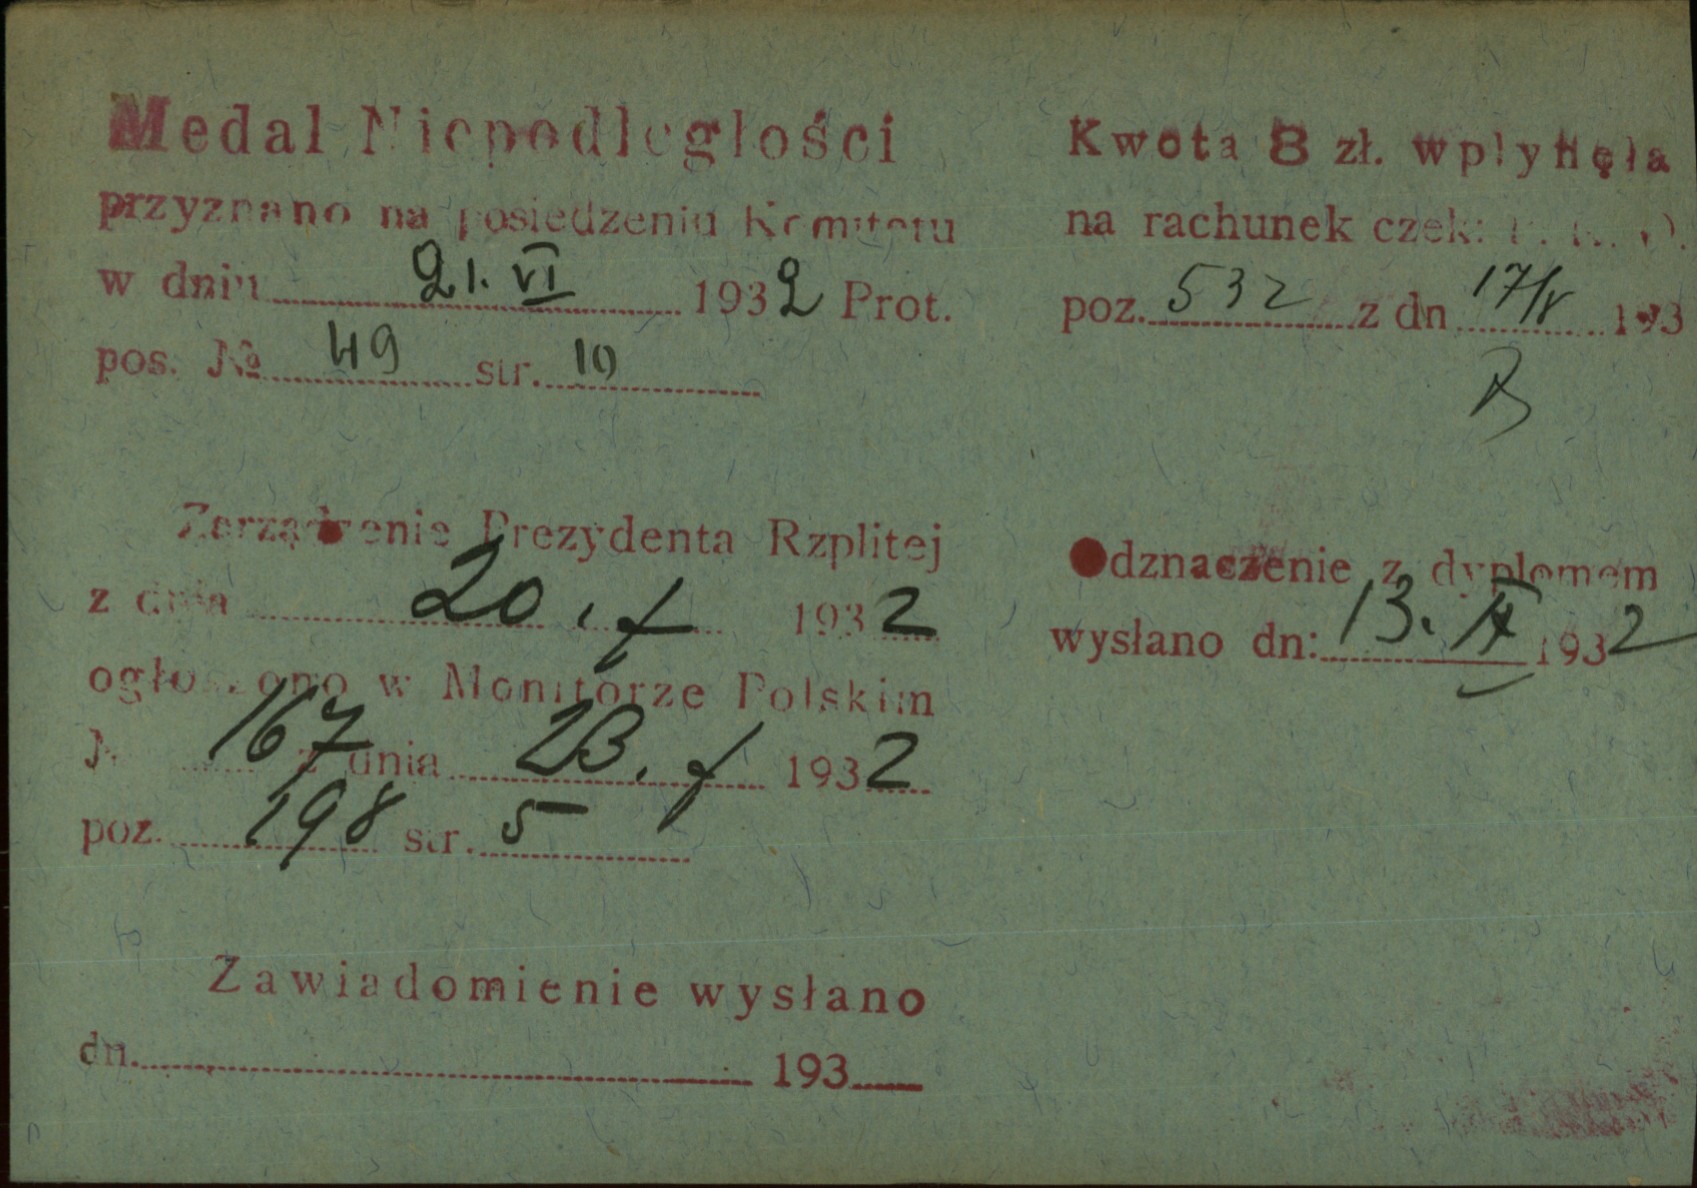 Medal Niepodległości
przyznano na posiedzeniu Komitetu
w dniu 21. VI 1932 Prot.
pos. № 49 str. 10
Zarządzenie Prezydenta Rzplitej
z dnia 20. 1932
ogłoszono w Monitorze Polskim
N 167 z dnia 23. 1932
poz. 198 str. 5
Zawiadomienie wysłano
dn. 193
Kwota 8 zł. wpłynęła
na rachunek czek: P. K. O.
poz. 532 z dn 17/8 193
Odznaczenie z dyplomem
wysłano dn: 13. 1932